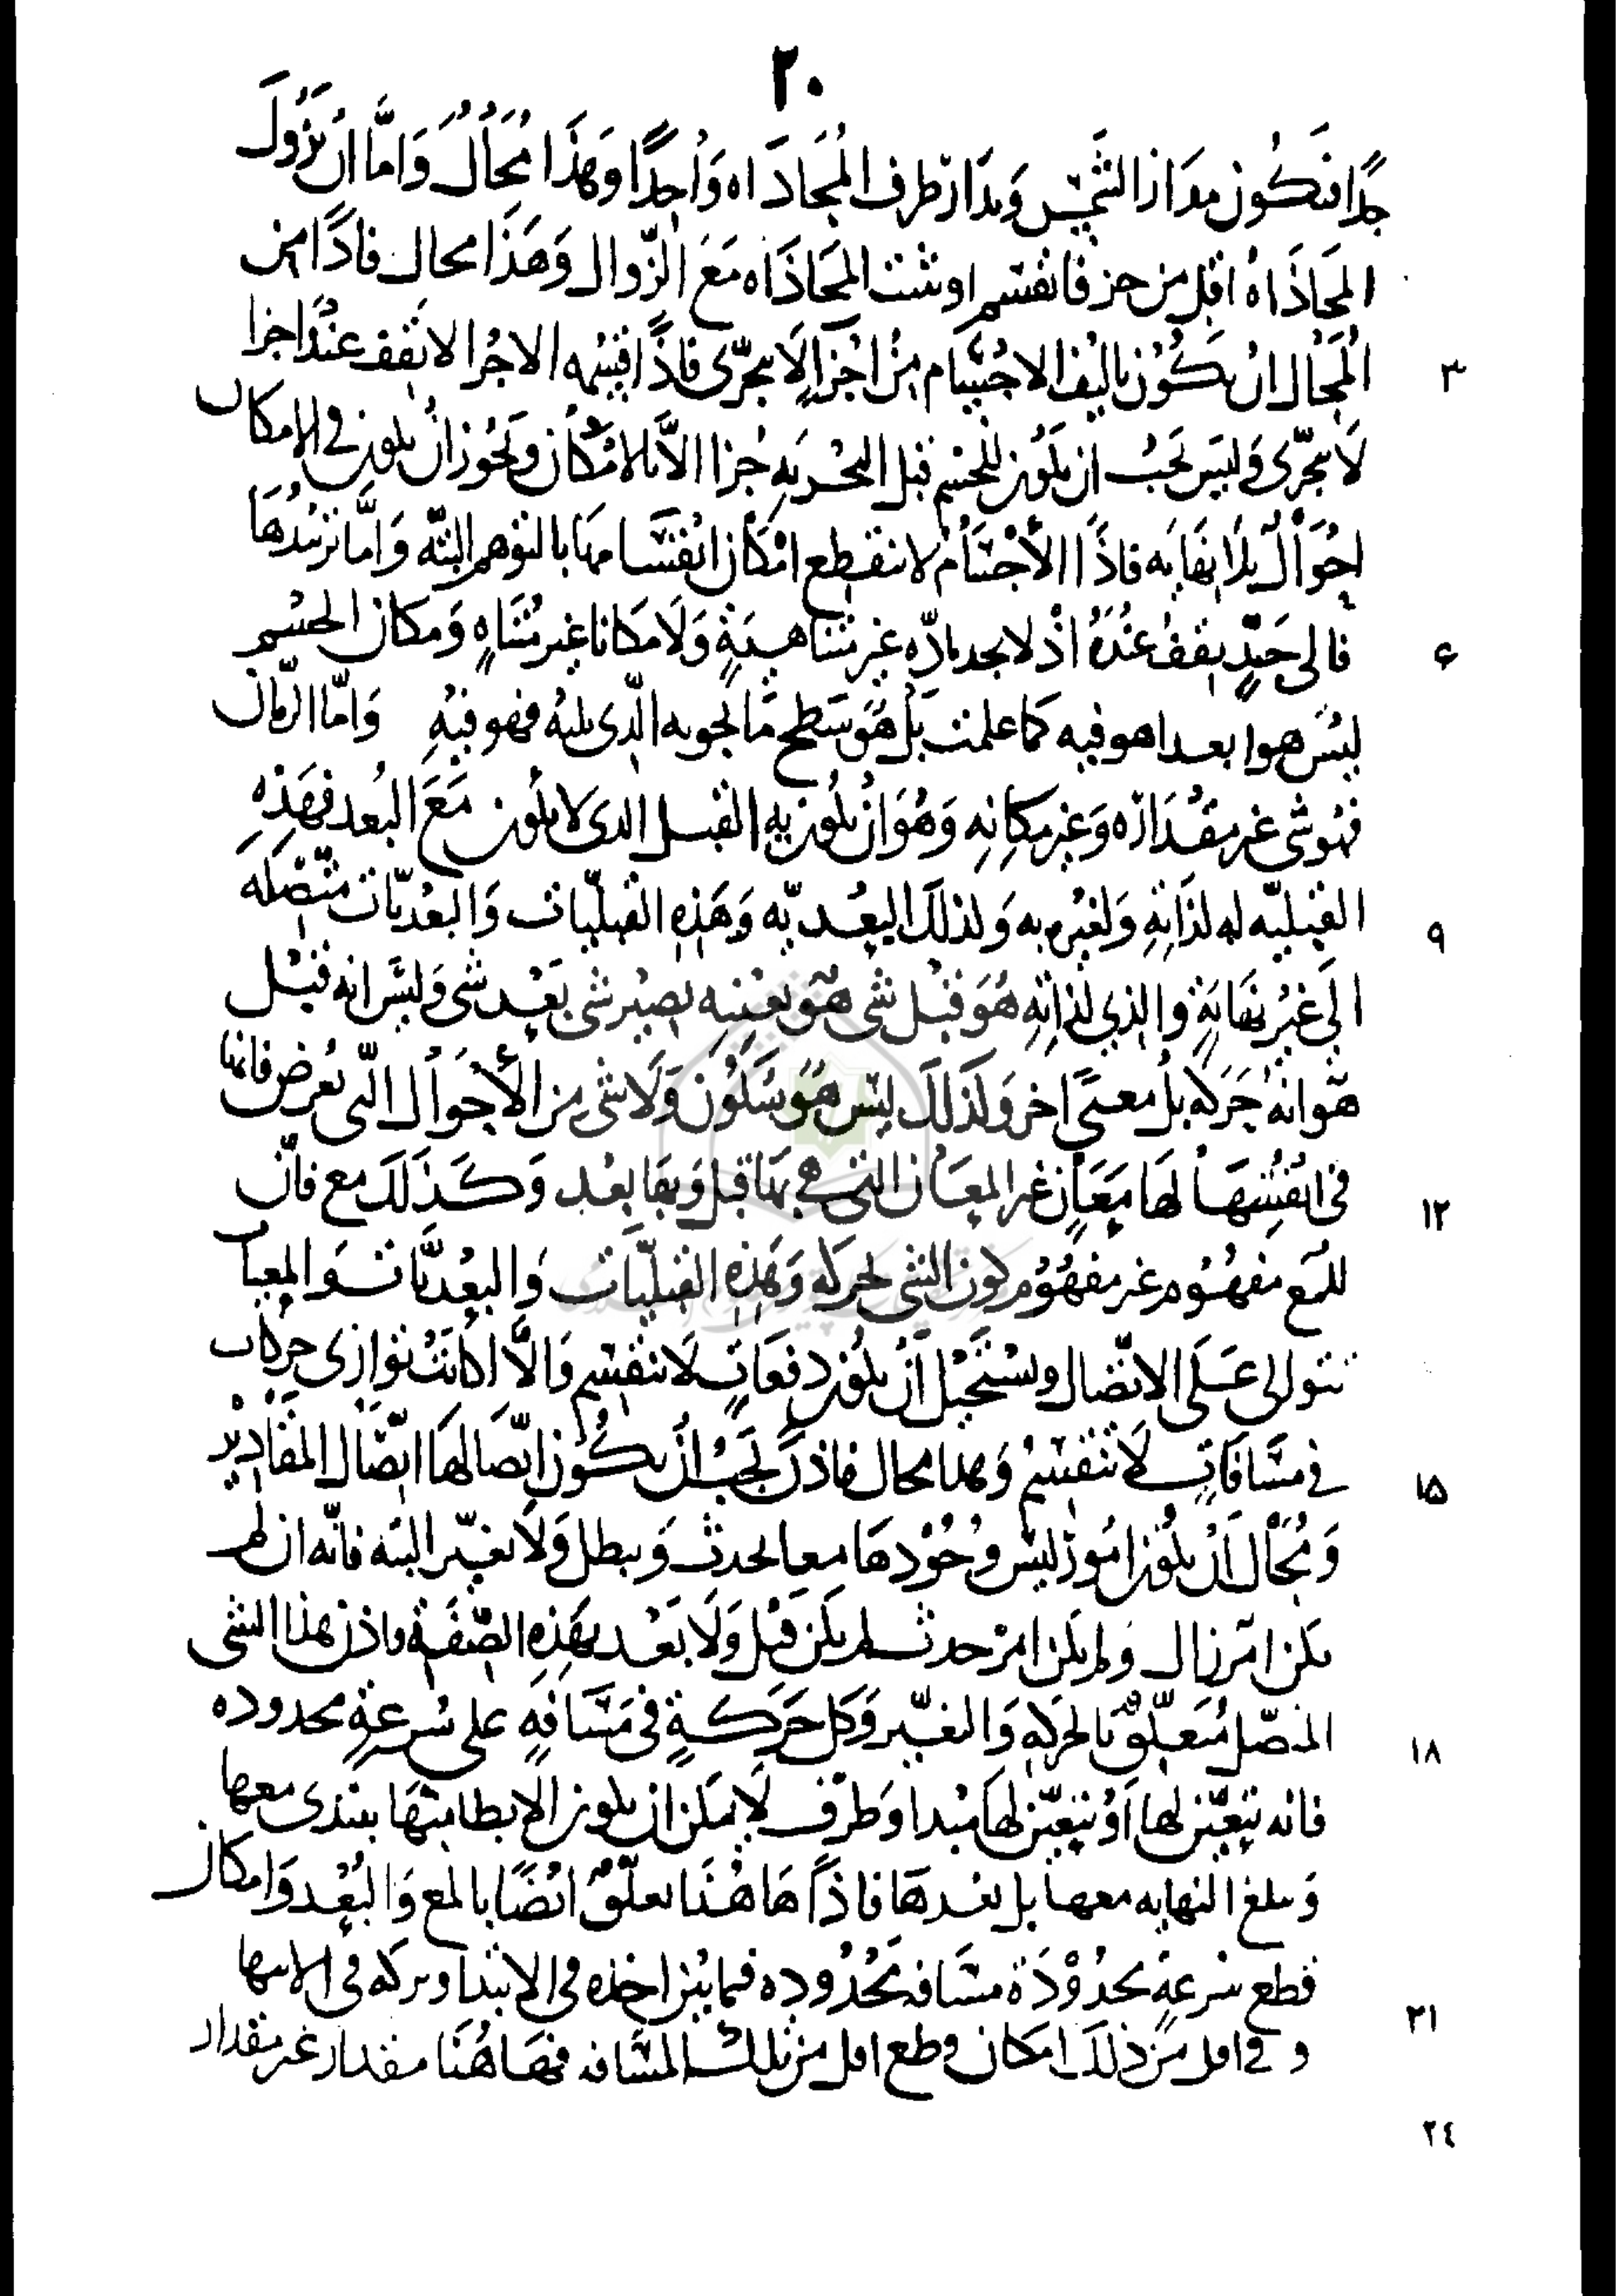 ٢٠
جدًا فتكون مدار الشمس ومدار طرف المحاذاه واحدًا وهذا محال واما ان تزول
المحاذاة اقل من جز فانقسم او تثبت المحاذاه مع الزوال وهذا محال فاذًا من
٣ المحال ان يكون تاليف الاجسام من اجزا لا تتجزى فاذًا قسمه الاجزا لا تقف عند اجزا
لا تتجزى وليس يجب ان يكون للجسم قبل التجزيه جزا الا بالامكان ويجوز ان يكون في الامكان
احوال بلا نهايه فاذًا الاجسام لا ينقطع امكان انقسامها بالتوهم البتّه وامّا تزيّدها
۶ فالى حدٍّ يقف عنده اذ لا يجد مادّه غير متناهيةٍ ولا مكانا غير متناهٍ ومكان الجسم
ليس هو ابعدا هو فيه كما علمت بل هو سطح ما يحويه الّذى يليه فهو فيه وامّا الزمان
فهو شى غير مقداره وغير مكانه وهو ان يكون به القبل الذى لا يكون مع البعد فهذه
٩ القبليّه له لذاته ولغيره به ولذلك البعديّه وهذه القبليّات والبعديّات متّصله
الى غير نهايةٍ والذي لذاته هو قبل شى هو بعينه يصير شى بعد شى وليس انه قبل
هو انه حركه بل معنىً اخر ولذلك ليس هو سكون ولا شى من الاحوال التى يعرض فانها
١٢ فى انفسها لها معانٍ غير المعان التى هى بها قبل وبها بعد وكذلك مع فانّ
للمع مفهوم غير مفهوم كون الشى لحركه وهذه القبليّات والبعديّات والمعيات
تتوالى على الاتّصال ويستحيل ان يكون دفعاتٍ لا تنقسم والّا لكانت توازى حركات
١۵ في مسافاتٍ لا تنقسم وهذا محال فاذن يجب ان يكون اتّصالها اتّصال المقادير
ومحال ان يكون امور ليس وجودها معا يحدث ويبطل ولا يغيّر البته فانّه ان لم
يكن امر زال ولم يكن امر حدث لم يكن قبل ولا بعد بهذه الصّفة فاذن هذا الشى
١٨ المتصّل متعلّق بالحركه والتغيّر وكل حركةٍ فى مسافهٍ على سرعةٍ محدوده
فانه يتعيّن لها او يتعيّن لها مبدا وطرف لا يمكن ان يكون الابطا منها يبتدى معها
ويبلغ النهايه معها بل بعدها فاذًا هاهنا تعلّق ايضًا بالمع والبعد وامكان
٢١ قطع سرعةٍ محدودة مسافه محدوده فيما بين اخذه فى الابتدا وتركه فى الانتها
و في اقل من ذلك امكان قطع اقل من تلك المسافه فهاهنا مقدار غير مقدار
٢٤